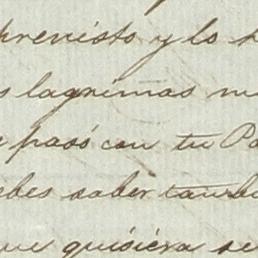 previsto y lo
lagrimas
pasó con tu Pa
ebes saber tambi
que quisiera se